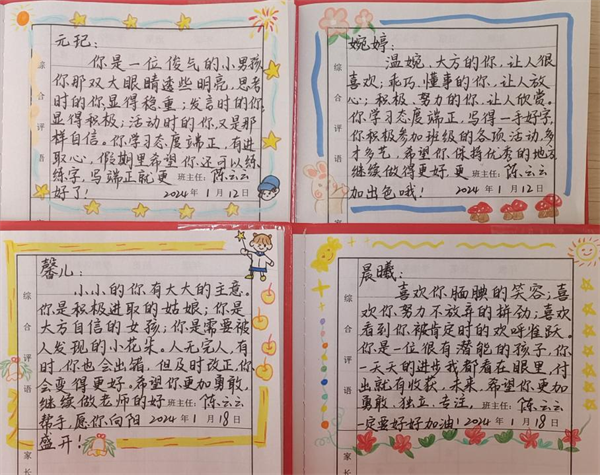 元玘：
你是一位俊气的小男孩
你那双大眼睛透些明亮，思考
时的你显得稳重；发言时的你
显得积极；活动时的你，又是那
样自信。你学习态度端正，有进
取心，假期里希望你还可以练
练字，写端正就更 班主任：陈云云
好了！ 2024年1月12日
综合评语
家
婉婷：
温婉、大方的你，让人很
喜欢；乖巧、懂事的你，让人放
心；积极、努力的你，让人欣赏。
你学习态度端正，写得一手好字，
你积极参加班级的各项活动，多
才多艺，希望你保持优秀的地方，
继续做得更好，更 班主任：陈云云
加出色哦！ 2024年1月12日
综合评语
家
馨儿：
小小的你有大大的主意。
你是积极进取的姑娘；你是
大方自信的女孩；你是需要被
人发现的小花朵。人无完人，有
时，你也会出错，但及时改正，你
会变得更好。希望你更加勇敢，
继续做老师的好 班主任：陈云云
帮手，愿你向阳 2024年1月18日
盛开！
综合评语
家长
晨曦：
喜欢你腼腆的笑容；喜
欢你努力不放弃的拼劲；喜欢
看到你被肯定时的欢呼雀跃。
你是一位很有潜能的孩子，你
一天天的进步我都看在眼里，付
出就有收获，未来，希望你更加
勇敢，独立，专注， 班主任：陈云云
一定要好好加油！ 2024年1月18日
综合评语
家长